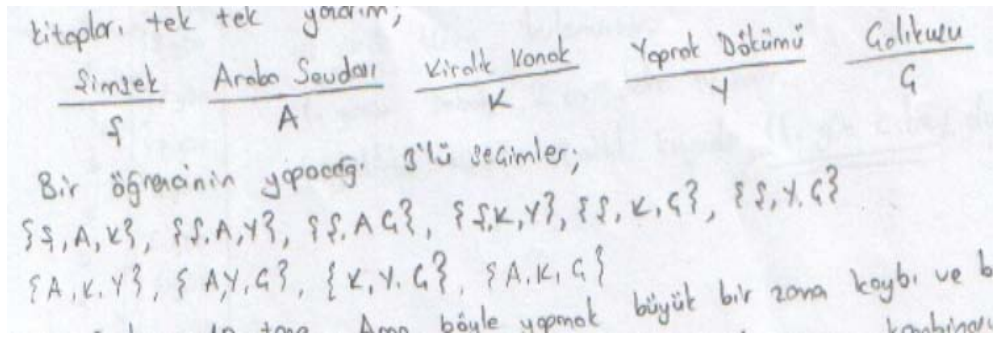 kitapları tek tek yazarım;
Şimşek Araba Sevdası Kiralık Konak Yaprak Dökümü Çalıkuşu
Ş A K Y Ç
Bir öğrencinin yapacağı 3'lü seçimler;
{Ş, A, K}, {Ş, A, Y}, {Ş, A Ç}, {Ş, K, Y}, {Ş, K, Ç}, {Ş, Y, Ç}
{A, K, Y}, {A, Y, Ç}, {K, Y, Ç}, {A, K, Ç}
Ama böyle yapmak büyük bir zama kaybı ve b